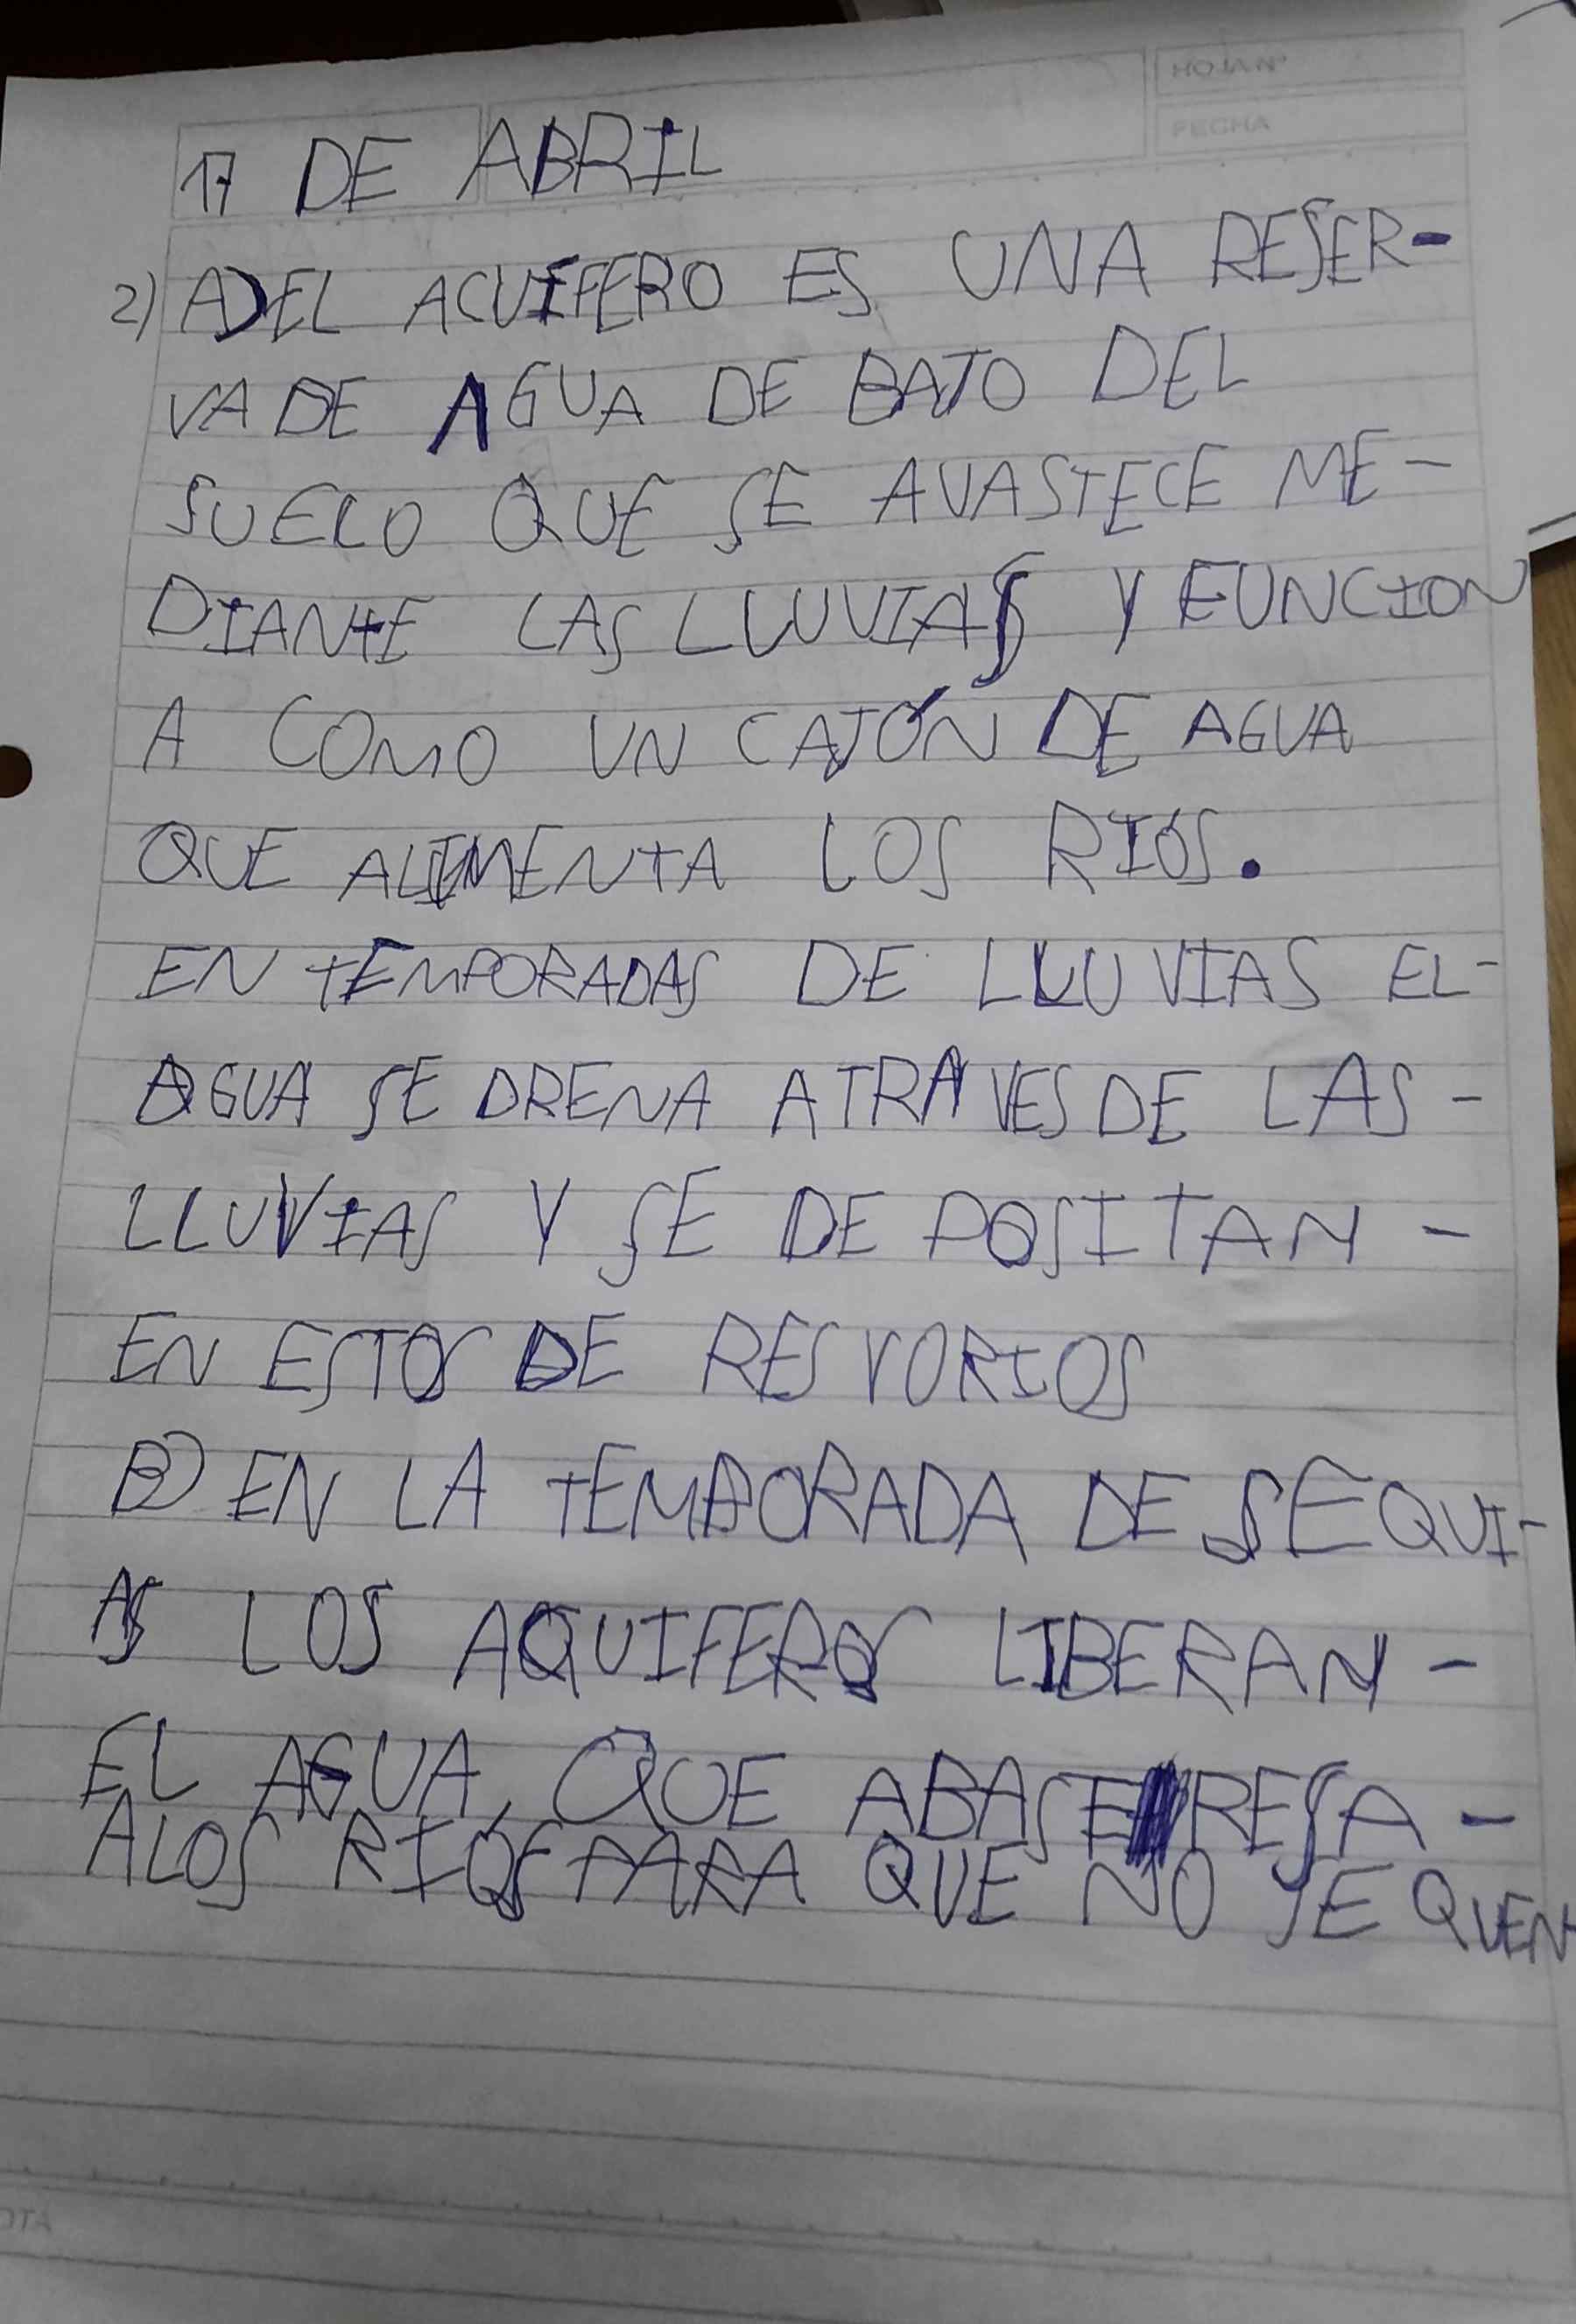 HOJA Nº
FECHA
17 DE ABRIL
2) A) EL ACUIFERO ES UNA RESER-
VA DE AGUA DE BAJO DEL
SUELO QUE SE AVASTECE ME-
DIANTE LAS LLUVIAS Y FUNCION
A COMO UN CAJÓN DE AGUA
QUE ALIMENTA LOS RIOS.
EN TEMPORADAS DE LLUVIAS EL-
AGUA SE DRENA ATRAVES DE LAS-
LLUVIAS Y SE DE POSITAN -
EN ESTOS DE RESVORIOS
B) EN LA TEMPORADA DE SEQUI-
AS LOS AQUIFEROS LIBERAN -
EL AGUA, QUE ABASE RESA -
ALOS RIOS PARA QUE NO SE QUEN
OTA